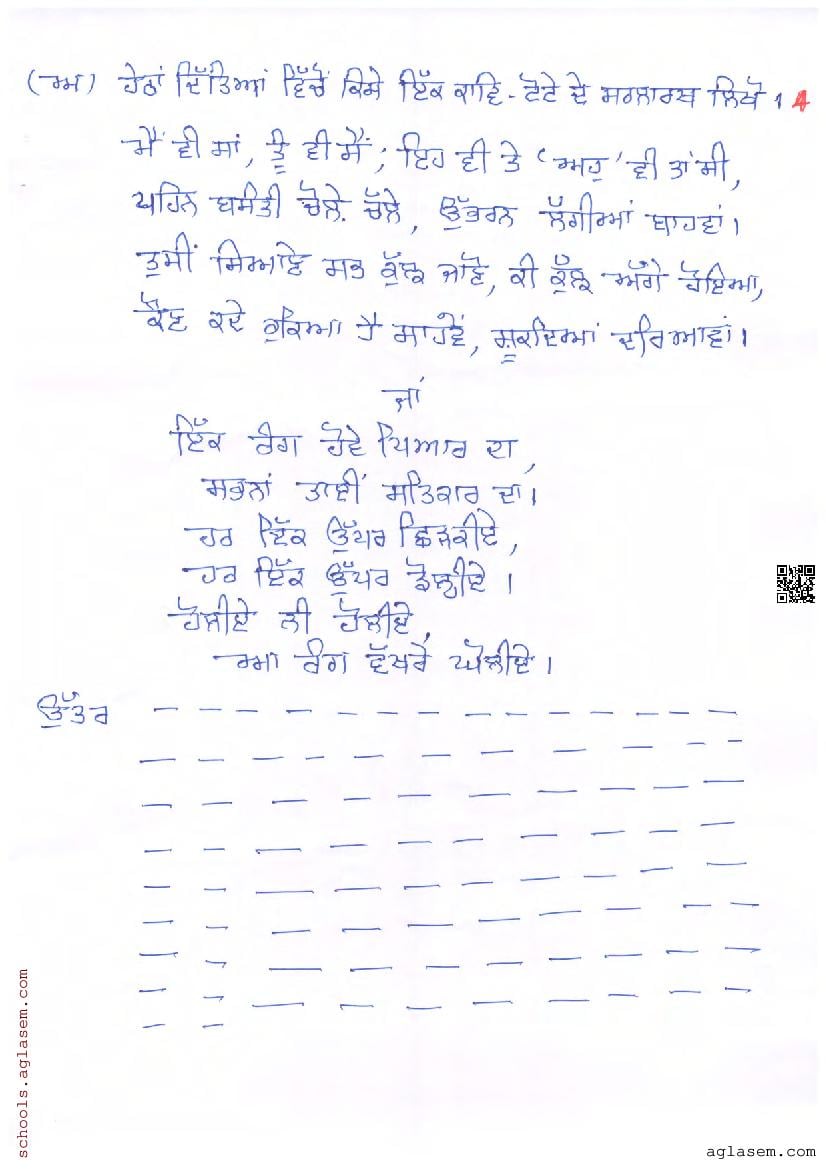 (ਅ) ਹੇਠਾਂ ਦਿੱਤਿਆਂ ਵਿੱਚੋਂ ਕਿਸੇ ਇੱਕ ਕਾਵਿ-ਟੋਟੇ ਦੇ ਸਰਲਾਰਥ ਲਿਖੋ। 4
ਮੈਂ ਵੀ ਸਾਂ, ਤੂੰ ਵੀ ਸੈਂ; ਇਹ ਵੀ ਤੇ 'ਅਹੁ' ਵੀ ਤਾਂ ਸੀ,
ਪਹਿਨ ਬਸੰਤੀ ਚੋਲੇ ਚੱਲੇ, ਉੱਭਰਨ ਲੱਗੀਆਂ ਬਾਹਵਾਂ।
ਤੁਸੀਂ ਸਿਆਣੇ ਸਭ ਕੁੱਝ ਜਾਣੋ, ਕੀ ਕੁੱਝ ਅੱਗੇ ਹੋਇਆ,
ਕੌਣ ਕਦੇ ਰੁਕਿਆ ਹੈ ਸਾਹਵੇਂ, ਸ਼ੂਕਦਿਆਂ ਦਰਿਆਵਾਂ।
ਜਾਂ
ਇੱਕ ਰੰਗ ਹੋਵੇ ਪਿਆਰ ਦਾ,
ਸਭਨਾਂ ਤਾਈਂ ਸਤਿਕਾਰ ਦਾ।
ਹਰ ਇੱਕ ਉੱਪਰ ਛਿੜਕੀਏ,
ਹਰ ਇੱਕ ਉੱਪਰ ਡੋਲ੍ਹੀਏ।
ਹੋਲੀਏ ਨੀ ਹੋਲੀਏ,
ਆ ਰੰਗ ਵੱਖਰੇ ਘੋਲੀਏ।
ਉੱਤਰ
schools.aglasem.com
aglasem.com